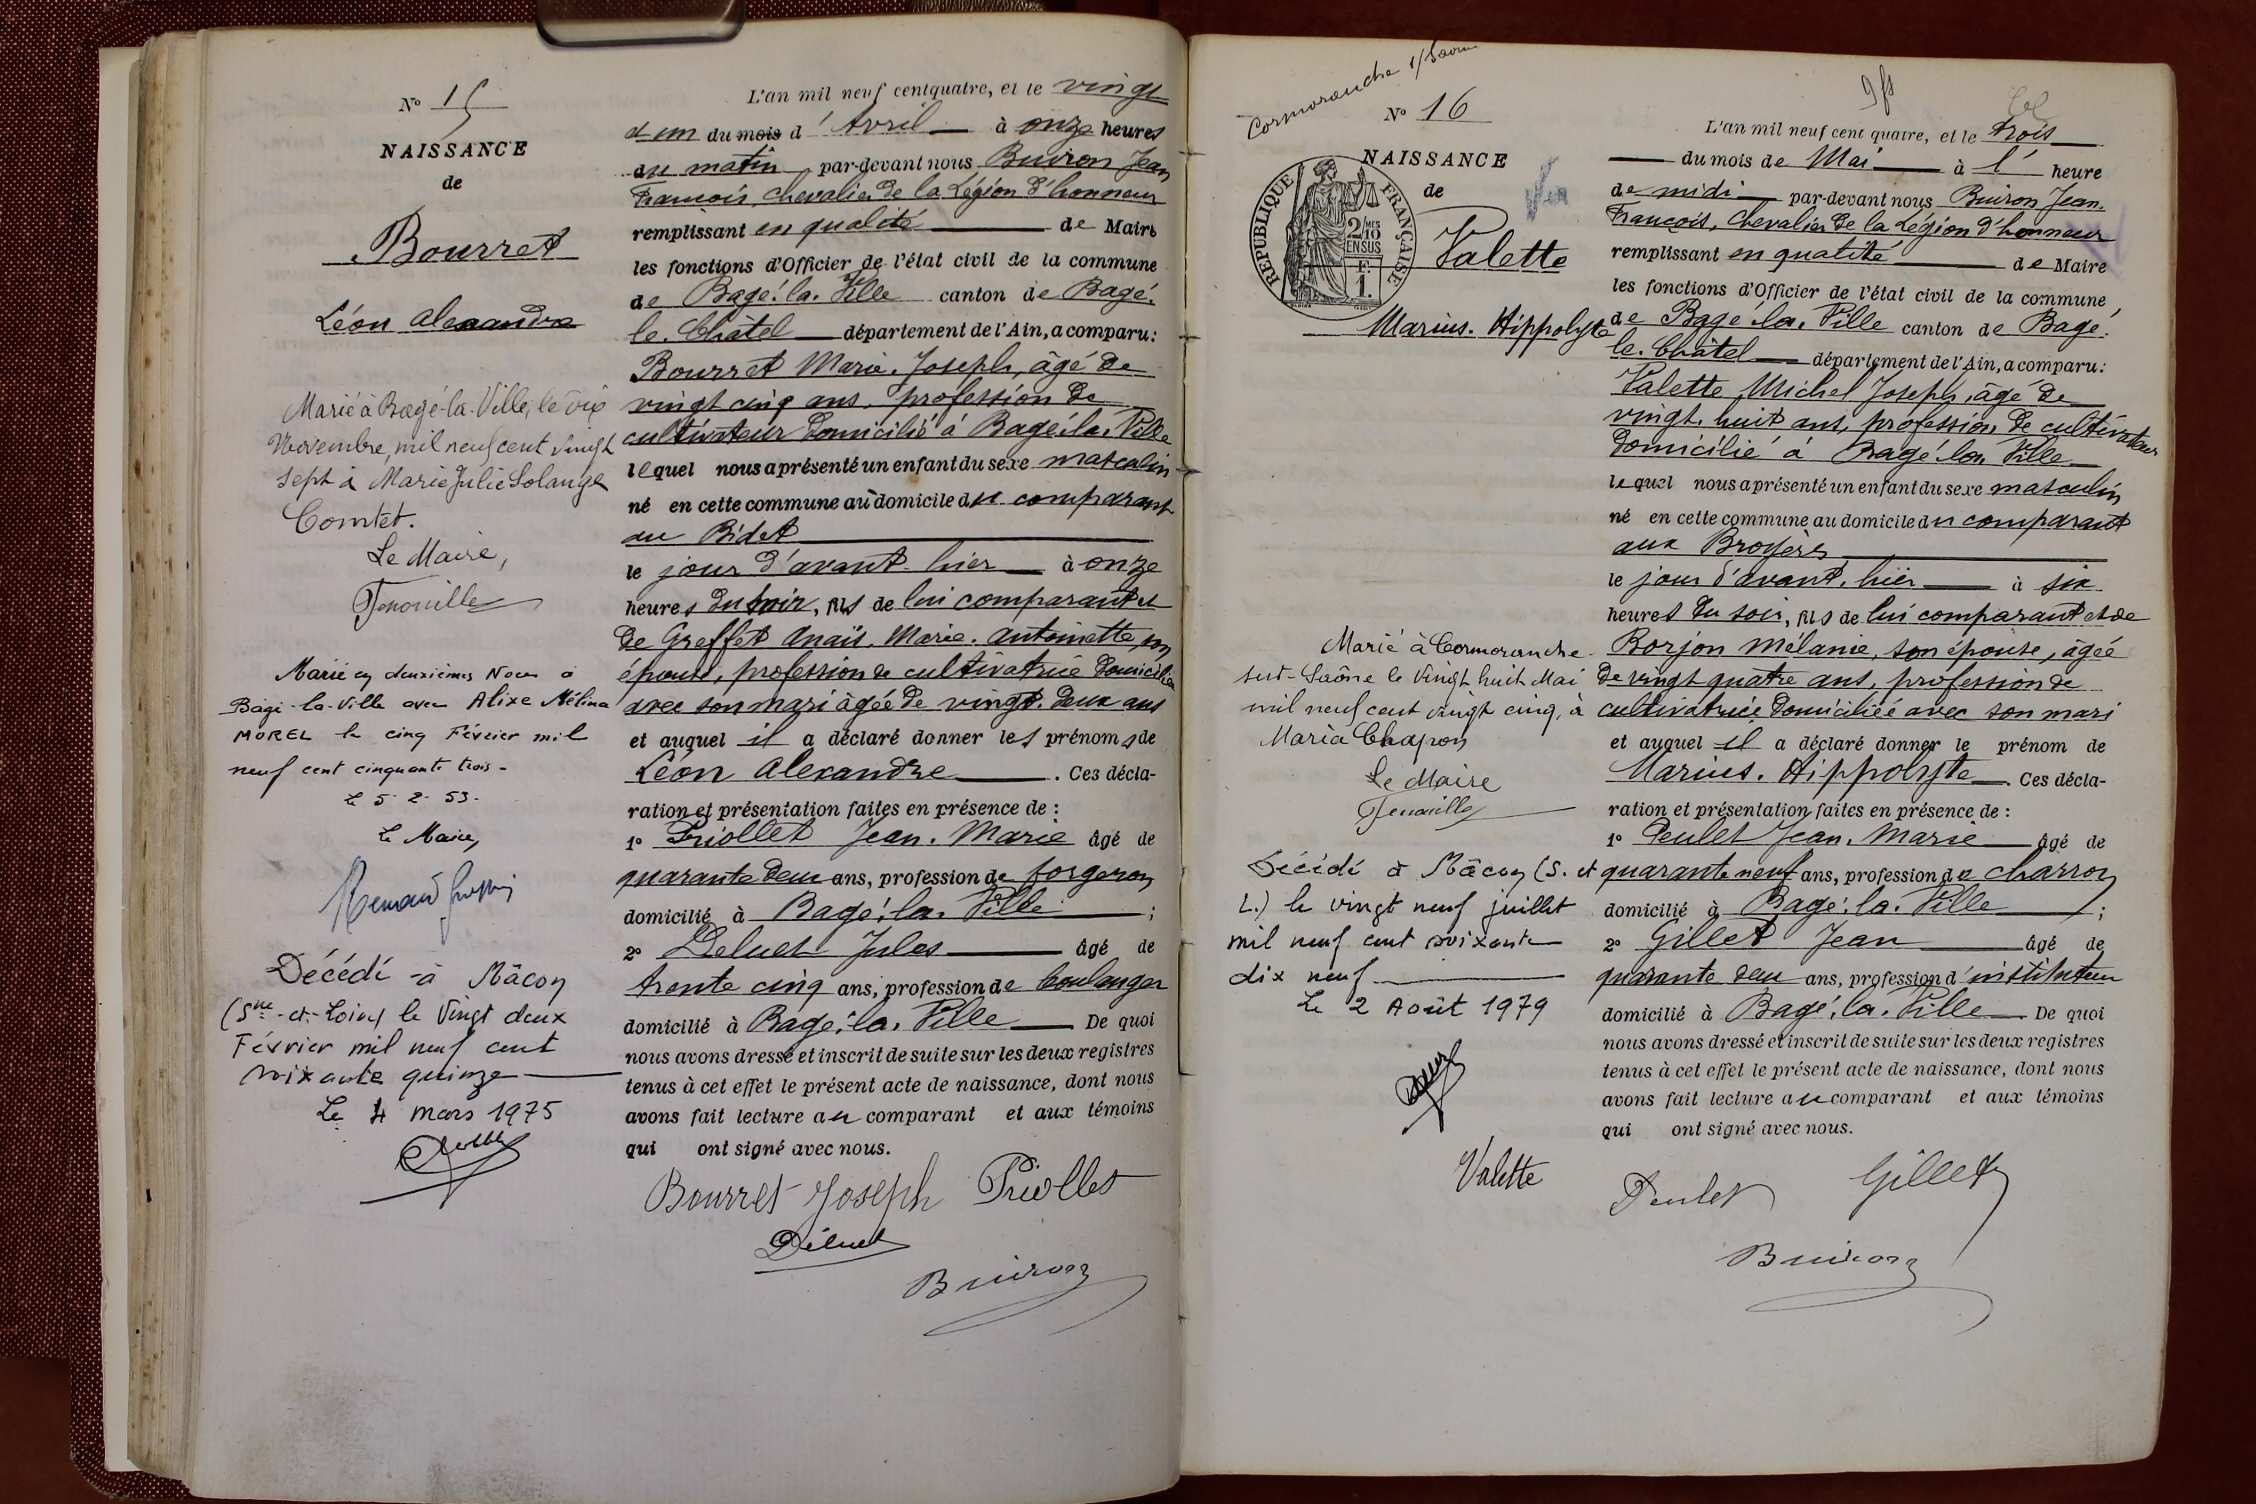 N° 15
NAISSANCE
de
Bourret
Léon Alexandre
Marié à Bagé-la-Ville, le dix
Novembre, mil neuf cent vingt
sept à Marie Julie Solange
Comtet.
Le Maire,
Marié en deuxièmes Noces à
Bagé-la-Ville avec Alixe Mélina
MOREL le cinq Février mil
neuf cent cinquante trois -
Le 5-2-53-
Le Maire,
Décédé à Mâcon
(Sne-et-Loire) le Vingt deux
Février mil neuf cent
soixante quinze
Le 4 mars 1975
L'an mil neuf cent quatre, et le vingt
et un du mois d'Avril à onze heures
du matin par-devant nous Buiron Jean
François, Chevalier de la Légion d'honneur
remplissant en qualité de Maire
les fonctions d'Officier de l'état civil de la commune
de Bagé-la-Ville canton de Bagé-
le-Châtel département de l'Ain, a comparu:
Bourret Marie-Joseph, âgé de
vingt cinq ans, profession de
cultivateur domicilié à Bagé-la-Ville
lequel nous a présenté un enfant du sexe masculin
né en cette commune au domicile du comparant
au Bidet
le jour d'avant-hier à onze
heures du soir, fils de lui comparant et
de Greffet Anaïs-Marie-Antoinette, son
épouse, profession de cultivatrice domiciliée
avec son mari âgée de vingt-deux ans
et auquel il a déclaré donner les prénoms de
Léon Alexandre. Ces décla-
ration et présentation faites en présence de :
1° Priollet Jean-Marie âgé de
quarante deux ans, profession de forgeron
domicilié à Bagé-la-Ville ;
2° Deluet Jules âgé de
trente cinq ans, profession de boulanger
domicilié à Bagé-la-Ville De quoi
nous avons dressé et inscrit de suite sur les deux registres
tenus à cet effet le présent acte de naissance, dont nous
avons fait lecture au comparant et aux témoins
qui ont signé avec nous.
Bourret Joseph Priollet
Déluet
Buiron
Cormoranche s/Saône
N° 16
NAISSANCE
de
REPUBLIQUE FRANÇAISE
2/MES
10
EN SUS
F.
1.
Valette
Marius-Hippolyte
Marié à Cormoranche-
sur-Saône le vingt huit Mai
mil neuf cent vingt cinq, à
Maria Chapon
Le Maire
Décédé à Mâcon (S. et
L.) le vingt neuf juillet
mil neuf cent soixante
dix neuf
Le 2 Août 1979
L'an mil neuf cent quatre, et le trois
du mois de Mai à l'heure
de midi par-devant nous Buiron Jean-
François, Chevalier de la Légion d'honneur
remplissant en qualité de Maire
les fonctions d'Officier de l'état civil de la commune
de Bagé-la-Ville canton de Bagé-
le-Châtel département de l'Ain, a comparu:
Valette Michel Joseph, âgé de
vingt-huit ans, profession de cultivateur
domicilié à Bagé-la-Ville
lequel nous a présenté un enfant du sexe masculin
né en cette commune au domicile du comparant
aux Broyères
le jour d'avant-hier à six
heures du soir, fils de lui comparant et de
Borjon Mélanie, son épouse, âgée
de vingt quatre ans, profession de
cultivatrice domiciliée avec son mari
et auquel il a déclaré donner le prénom de
Marius-Hippolyte. Ces décla-
ration et présentation faites en présence de :
1° Peulet Jean-Marie âgé de
quarante neuf ans, profession de charron
domicilié à Bagé-la-Ville ;
2° Gillet Jean âgé de
quarante deux ans, profession d'instituteur
domicilié à Bagé-la-Ville De quoi
nous avons dressé et inscrit de suite sur les deux registres
tenus à cet effet le présent acte de naissance, dont nous
avons fait lecture au comparant et aux témoins
qui ont signé avec nous.
Valette Peulet Gillet
Buiron